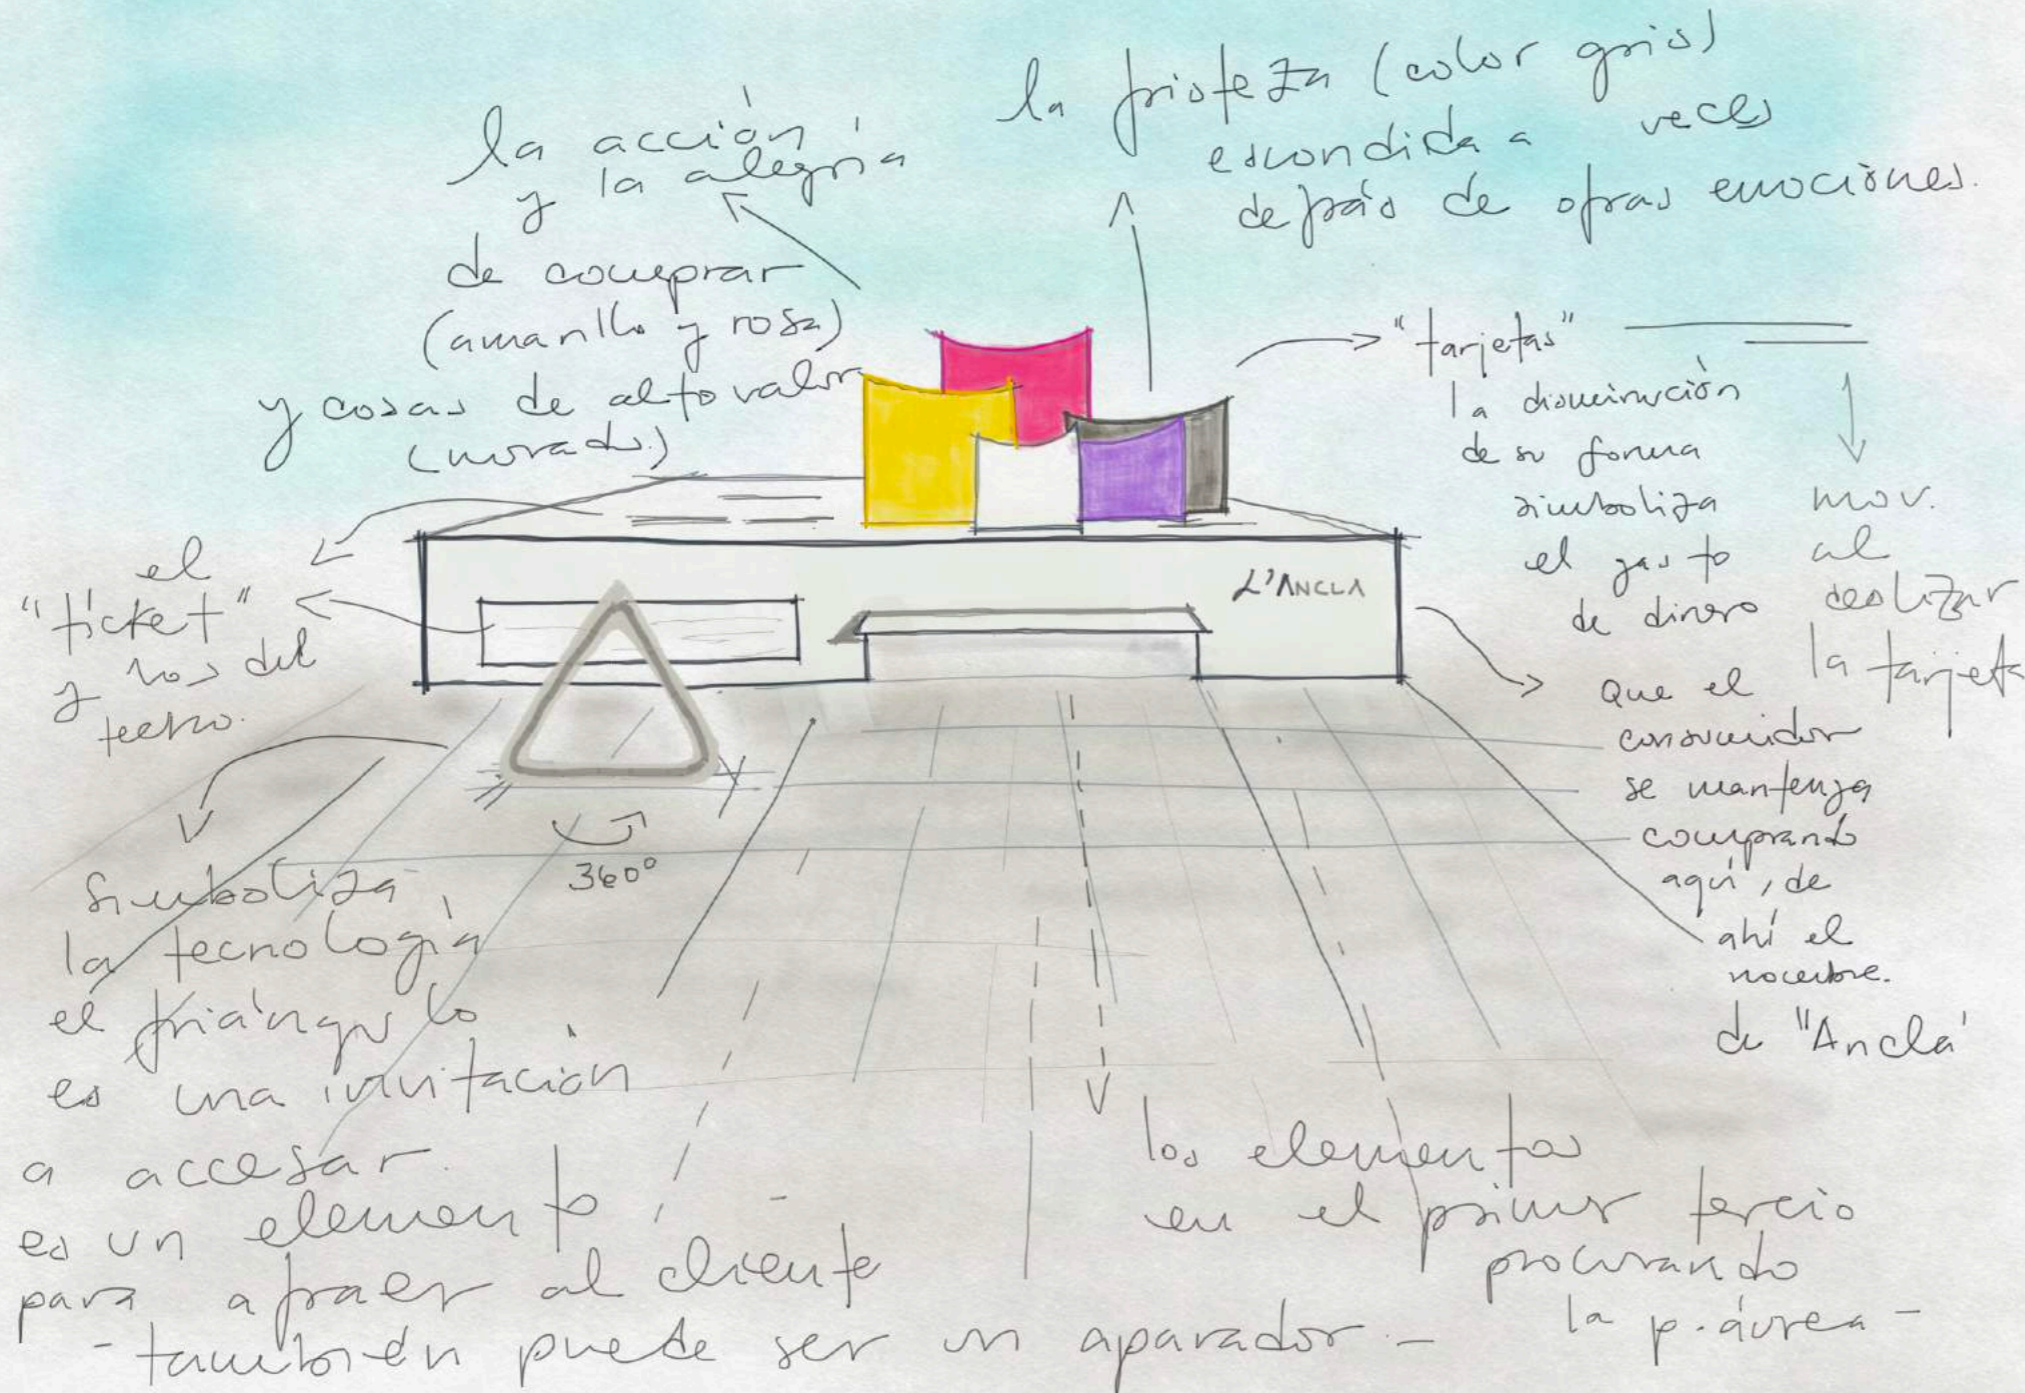 la acción
y la alegría
de comprar
(amarillo y rosa)
y cosas de alto valor
(morado.)
la tristeza (color gris)
escondida a veces
detrás de otras emociones.
"tarjetas"
la disminución
de su forma
simboliza
el gasto
de dinero
mov.
al
deslizar
la tarjeta
L'ANCLA
el
"ticket"
y los del
techo.
Que el
consumidor
se mantenga
comprando
aquí, de
ahí el
nombre.
de "Ancla'
360°
Simboliza
la tecnología
el triángulo
es una invitación
a accesar.
es un elemento
para atraer al cliente
- también puede ser un aparador. -
los elementos
en el primer tercio
procurando
la p. áurea -